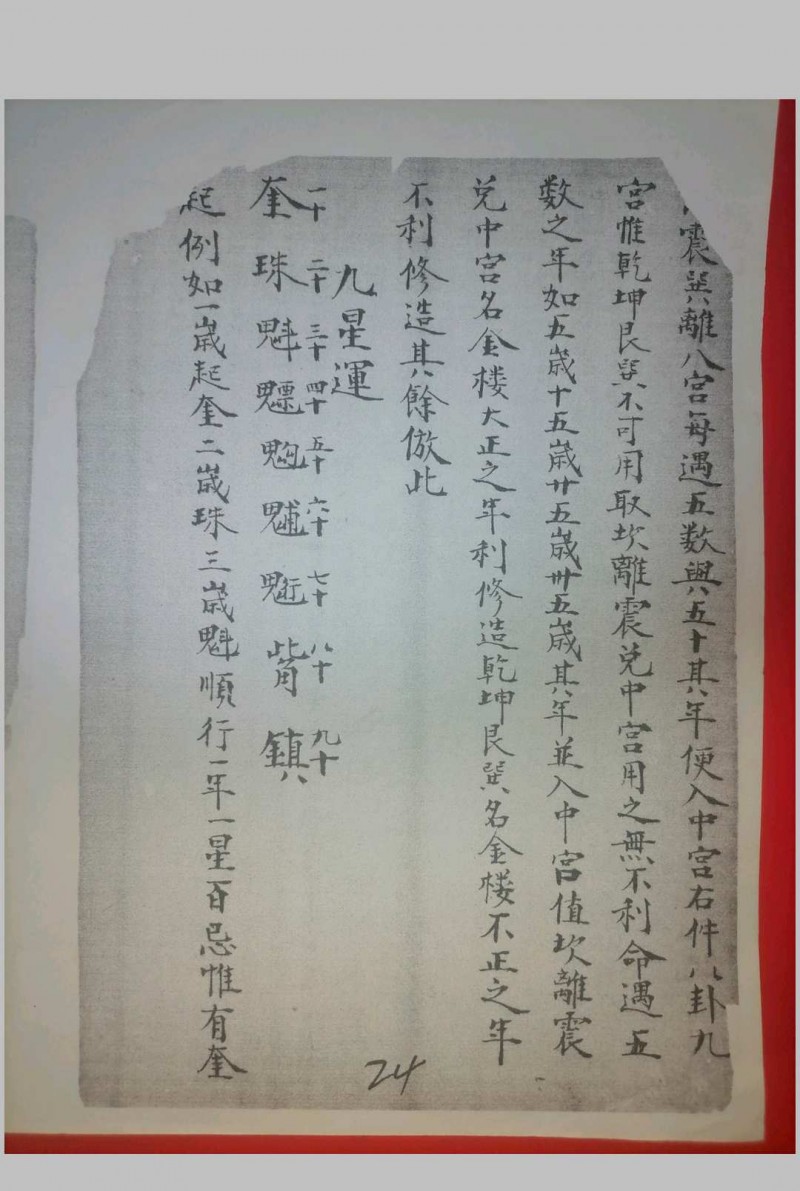 震巽離八宮每遇五数與五十其年便入中宮右件八卦九
宮惟乾坤艮巽不可用取坎離震兑中宮用之無不利命遇五
数之年如五歲十五歲廿五歲卅五歲其年並入中宮值坎離震
兑中宮名金楼大正之年利修造乾坤艮巽名金楼不正之年
不利修造其餘倣此
九星運
一十 二十 三十 四十 五十 六十 七十 八十 九十
奎 珠 魁 魒 魓 䰢 觜 鎮
起例如一歲起奎二歲珠三歲魁順行一年一星百忌惟有奎
24